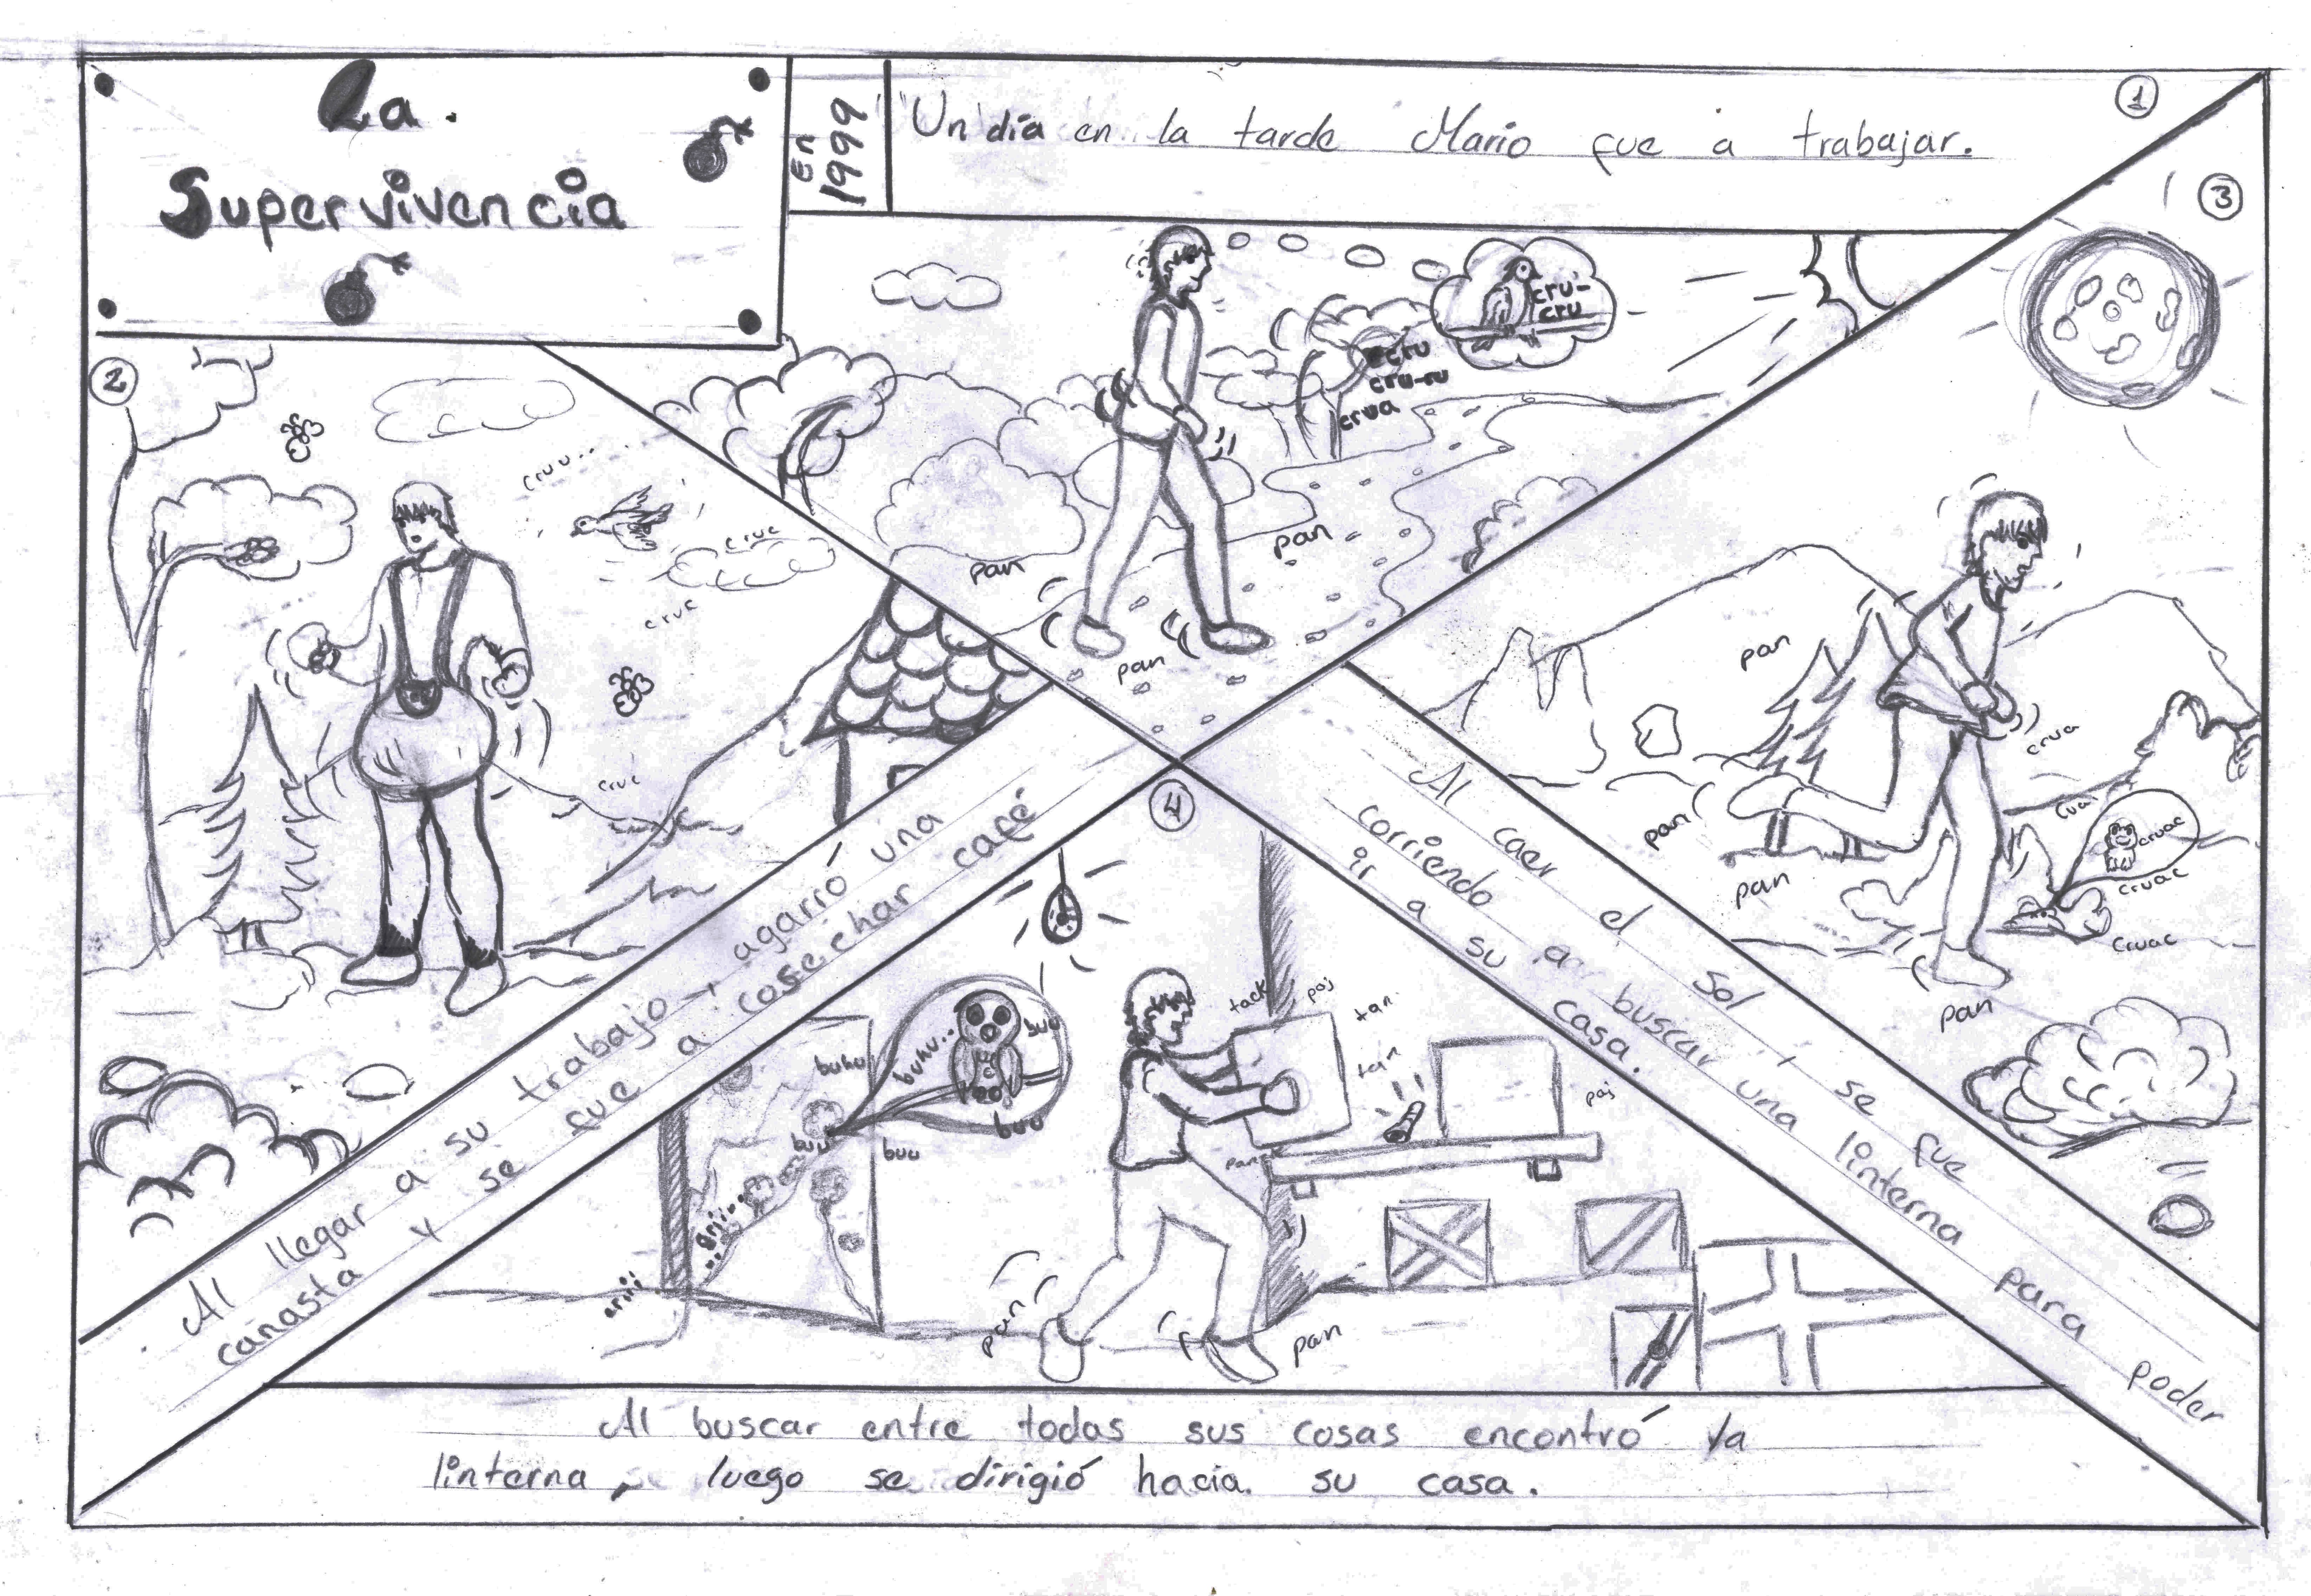 La.
Supervivencia
En
1999
Un día en la tarde Mario fue a trabajar.
1
cru-
cru
cru
cru-ru
crua
pan
pan
pan
2
cruu..
cruc
cruc
cruc
Al llegar a su trabajo, agarró una
canasta y se fue a cosechar café
3
pan
pan
pan
pan
crua
cua
cruac
cruac
cruac
Al caer el sol, se fue
corriendo a buscar una linterna para poder
ir a su casa.
4
buhu
buhu...
buu
buu
buu
buu
tack
paj
tan
tan
paj
pan
pan
Al buscar entre todas sus cosas encontró la
linterna, luego se dirigió hacia su casa.